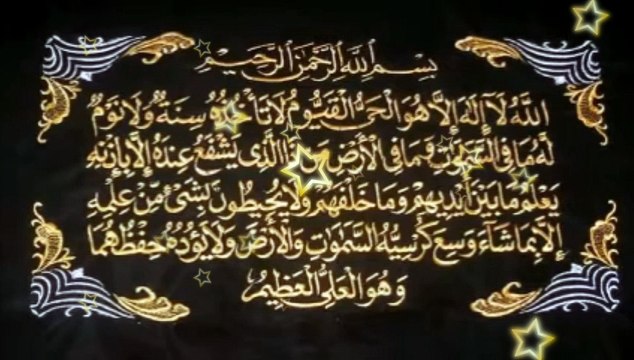 بِسْمِ اللهِ الرَّحْمٰنِ الرَّحِيْمِ
اللهُ لَآ اِلٰهَ اِلَّا هُوَ الْحَيُّ الْقَيُّوْمُ لَا تَأْخُذُهُ سِنَةٌ وَلَا نَوْمٌ
لَهُ مَا فِى السَّمٰوٰتِ وَمَا فِى الْاَرْضِ الَّذِى يَشْفَعُ عِنْدَهُ اِلَّا بِاِذْنِهِ
يَعْلَمُ مَا بَيْنَ اَيْدِيْهِمْ وَمَا خَلْفَهُمْ وَلَا يُحِيْطُوْنَ بِشَىْءٍ مِّنْ عِلْمِهِ
اِلَّا بِمَا شَآءَ وَسِعَ كُرْسِيُّهُ السَّمٰوٰتِ وَالْاَرْضَ وَلَا يَؤُدُهُ حِفْظُهُمَا
وَهُوَ الْعَلِىُّ الْعَظِيْمُ